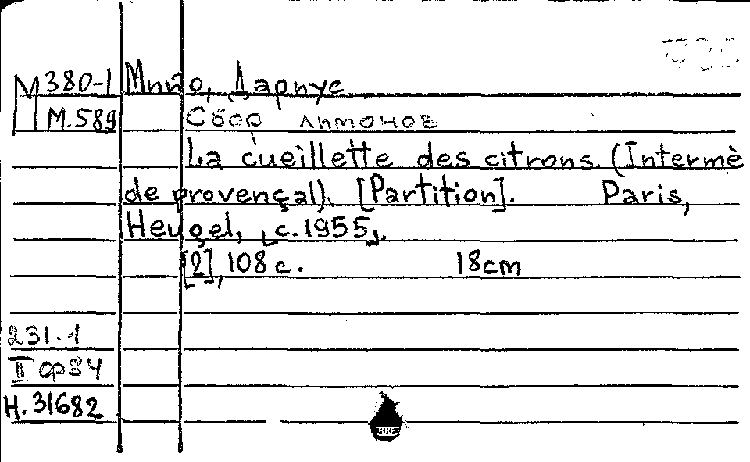 М 380-1 Мийо, Дариус
М.589 Сбор лимонов
La cueillette des citrons. (Intermè
de provençal). [Partition]. Paris,
Heugel, [c.1955].
[2], 108 с. 18cm
231-1
II ф84
Н.31682